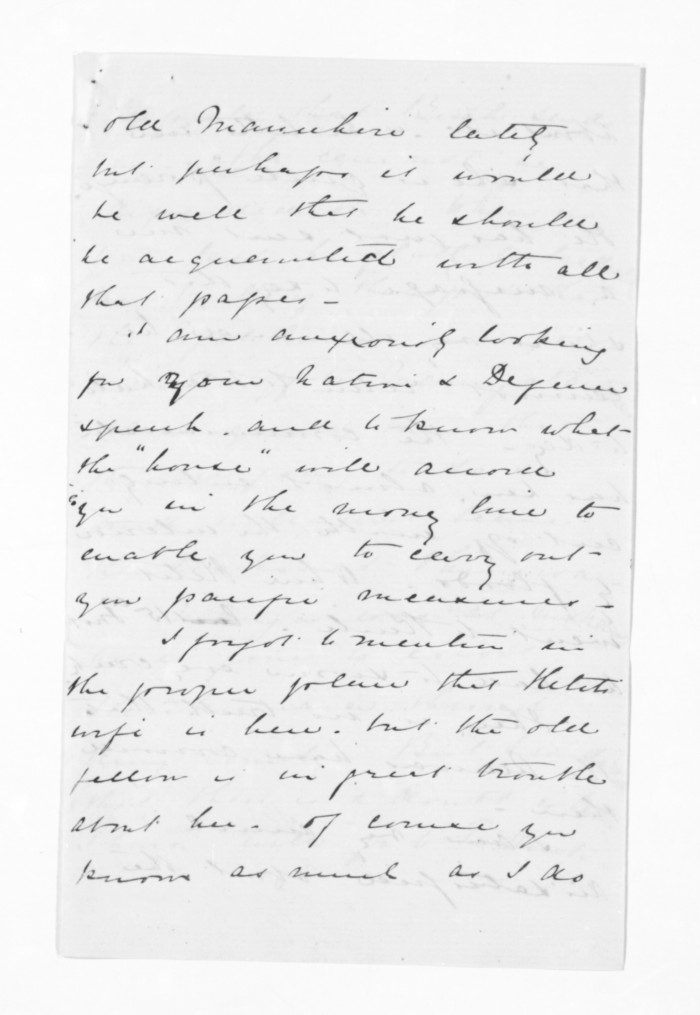 old Manuhiri lately
but perhaps it would
be well that he should
be acquainted with all
that passes -
I am anxiously looking
for your Native & Defence
speech. and to know what
the "house" will accord
you in the money line to
enable you to carry out
your pacific measures -
I forgot to mention in
the proper place that Heteti
wife is here. but the old
fellow is in great trouble
about her. Of course you
know as much as I do